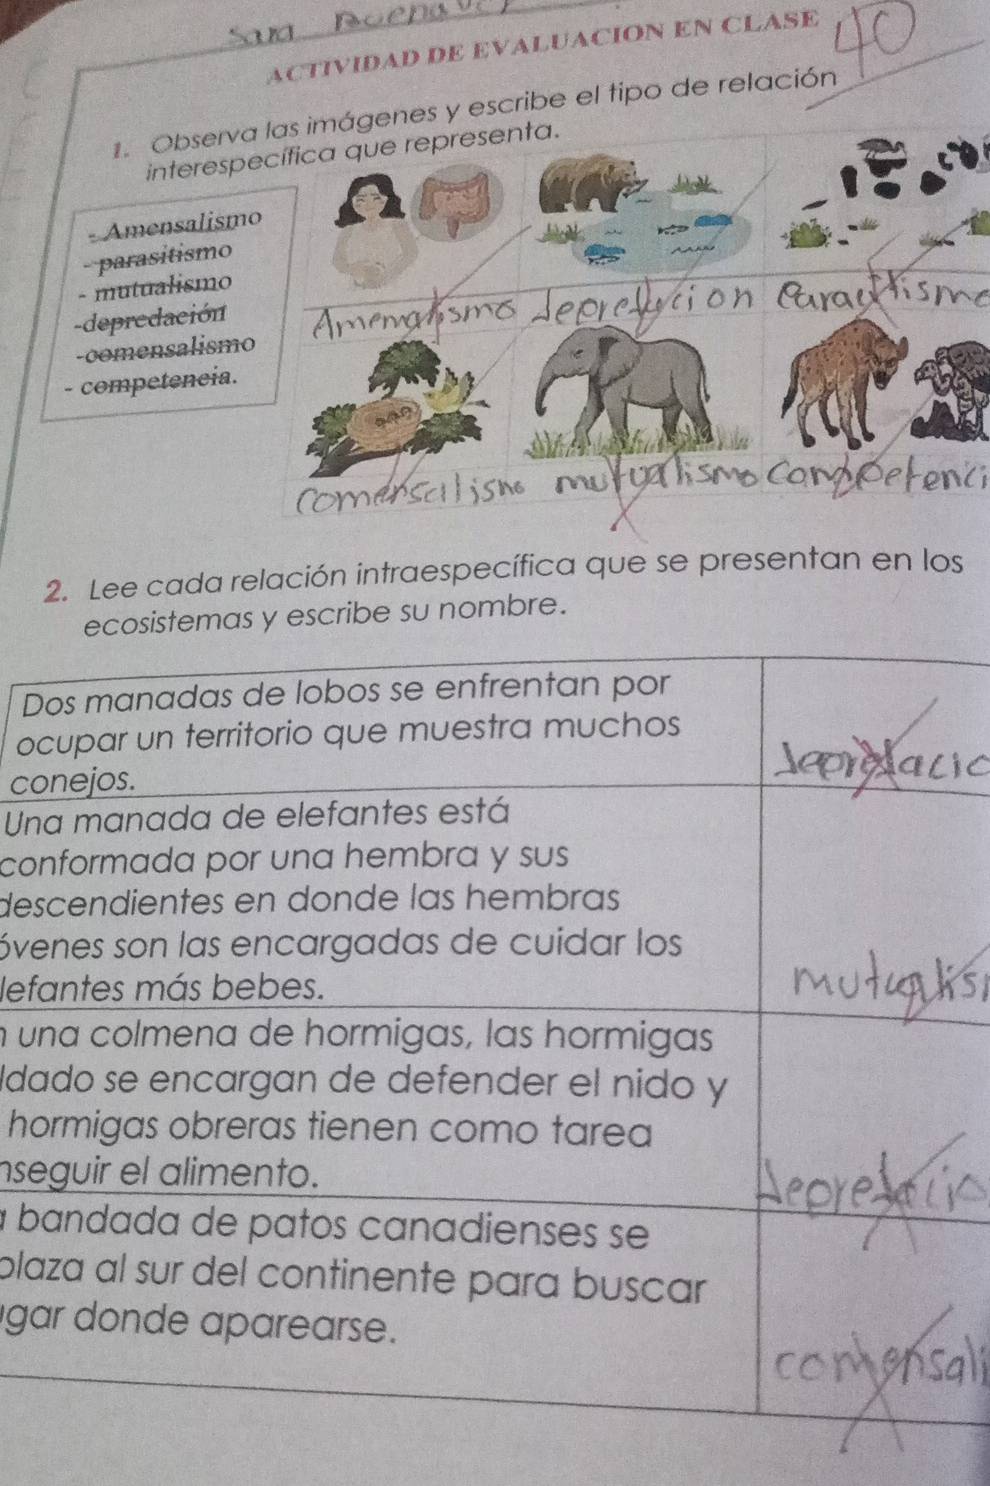 Sara Buena
ACTIVIDAD DE EVALUACION EN CLASE
40
1. Observa las imágenes y escribe el tipo de relación
interespecífica que representa.
- Amensalismo
- parasitismo
- mutualismo
-depredación
-comensalismo
- competencia.
Amenalismo depredacion Paracitismo
comensalismo mutualismo competenci
2. Lee cada relación intraespecífica que se presentan en los
ecosistemas y escribe su nombre.
Dos manadas de lobos se enfrentan por
ocupar un territorio que muestra muchos
conejos.
depredacio
Una manada de elefantes está
conformada por una hembra y sus
descendientes en donde las hembras
óvenes son las encargadas de cuidar los
lefantes más bebes.
mutualis
n una colmena de hormigas, las hormigas
ldado se encargan de defender el nido y
hormigas obreras tienen como tarea
nseguir el alimento.
depredacio
a bandada de patos canadienses se
plaza al sur del continente para buscar
ugar donde aparearse.
comensali